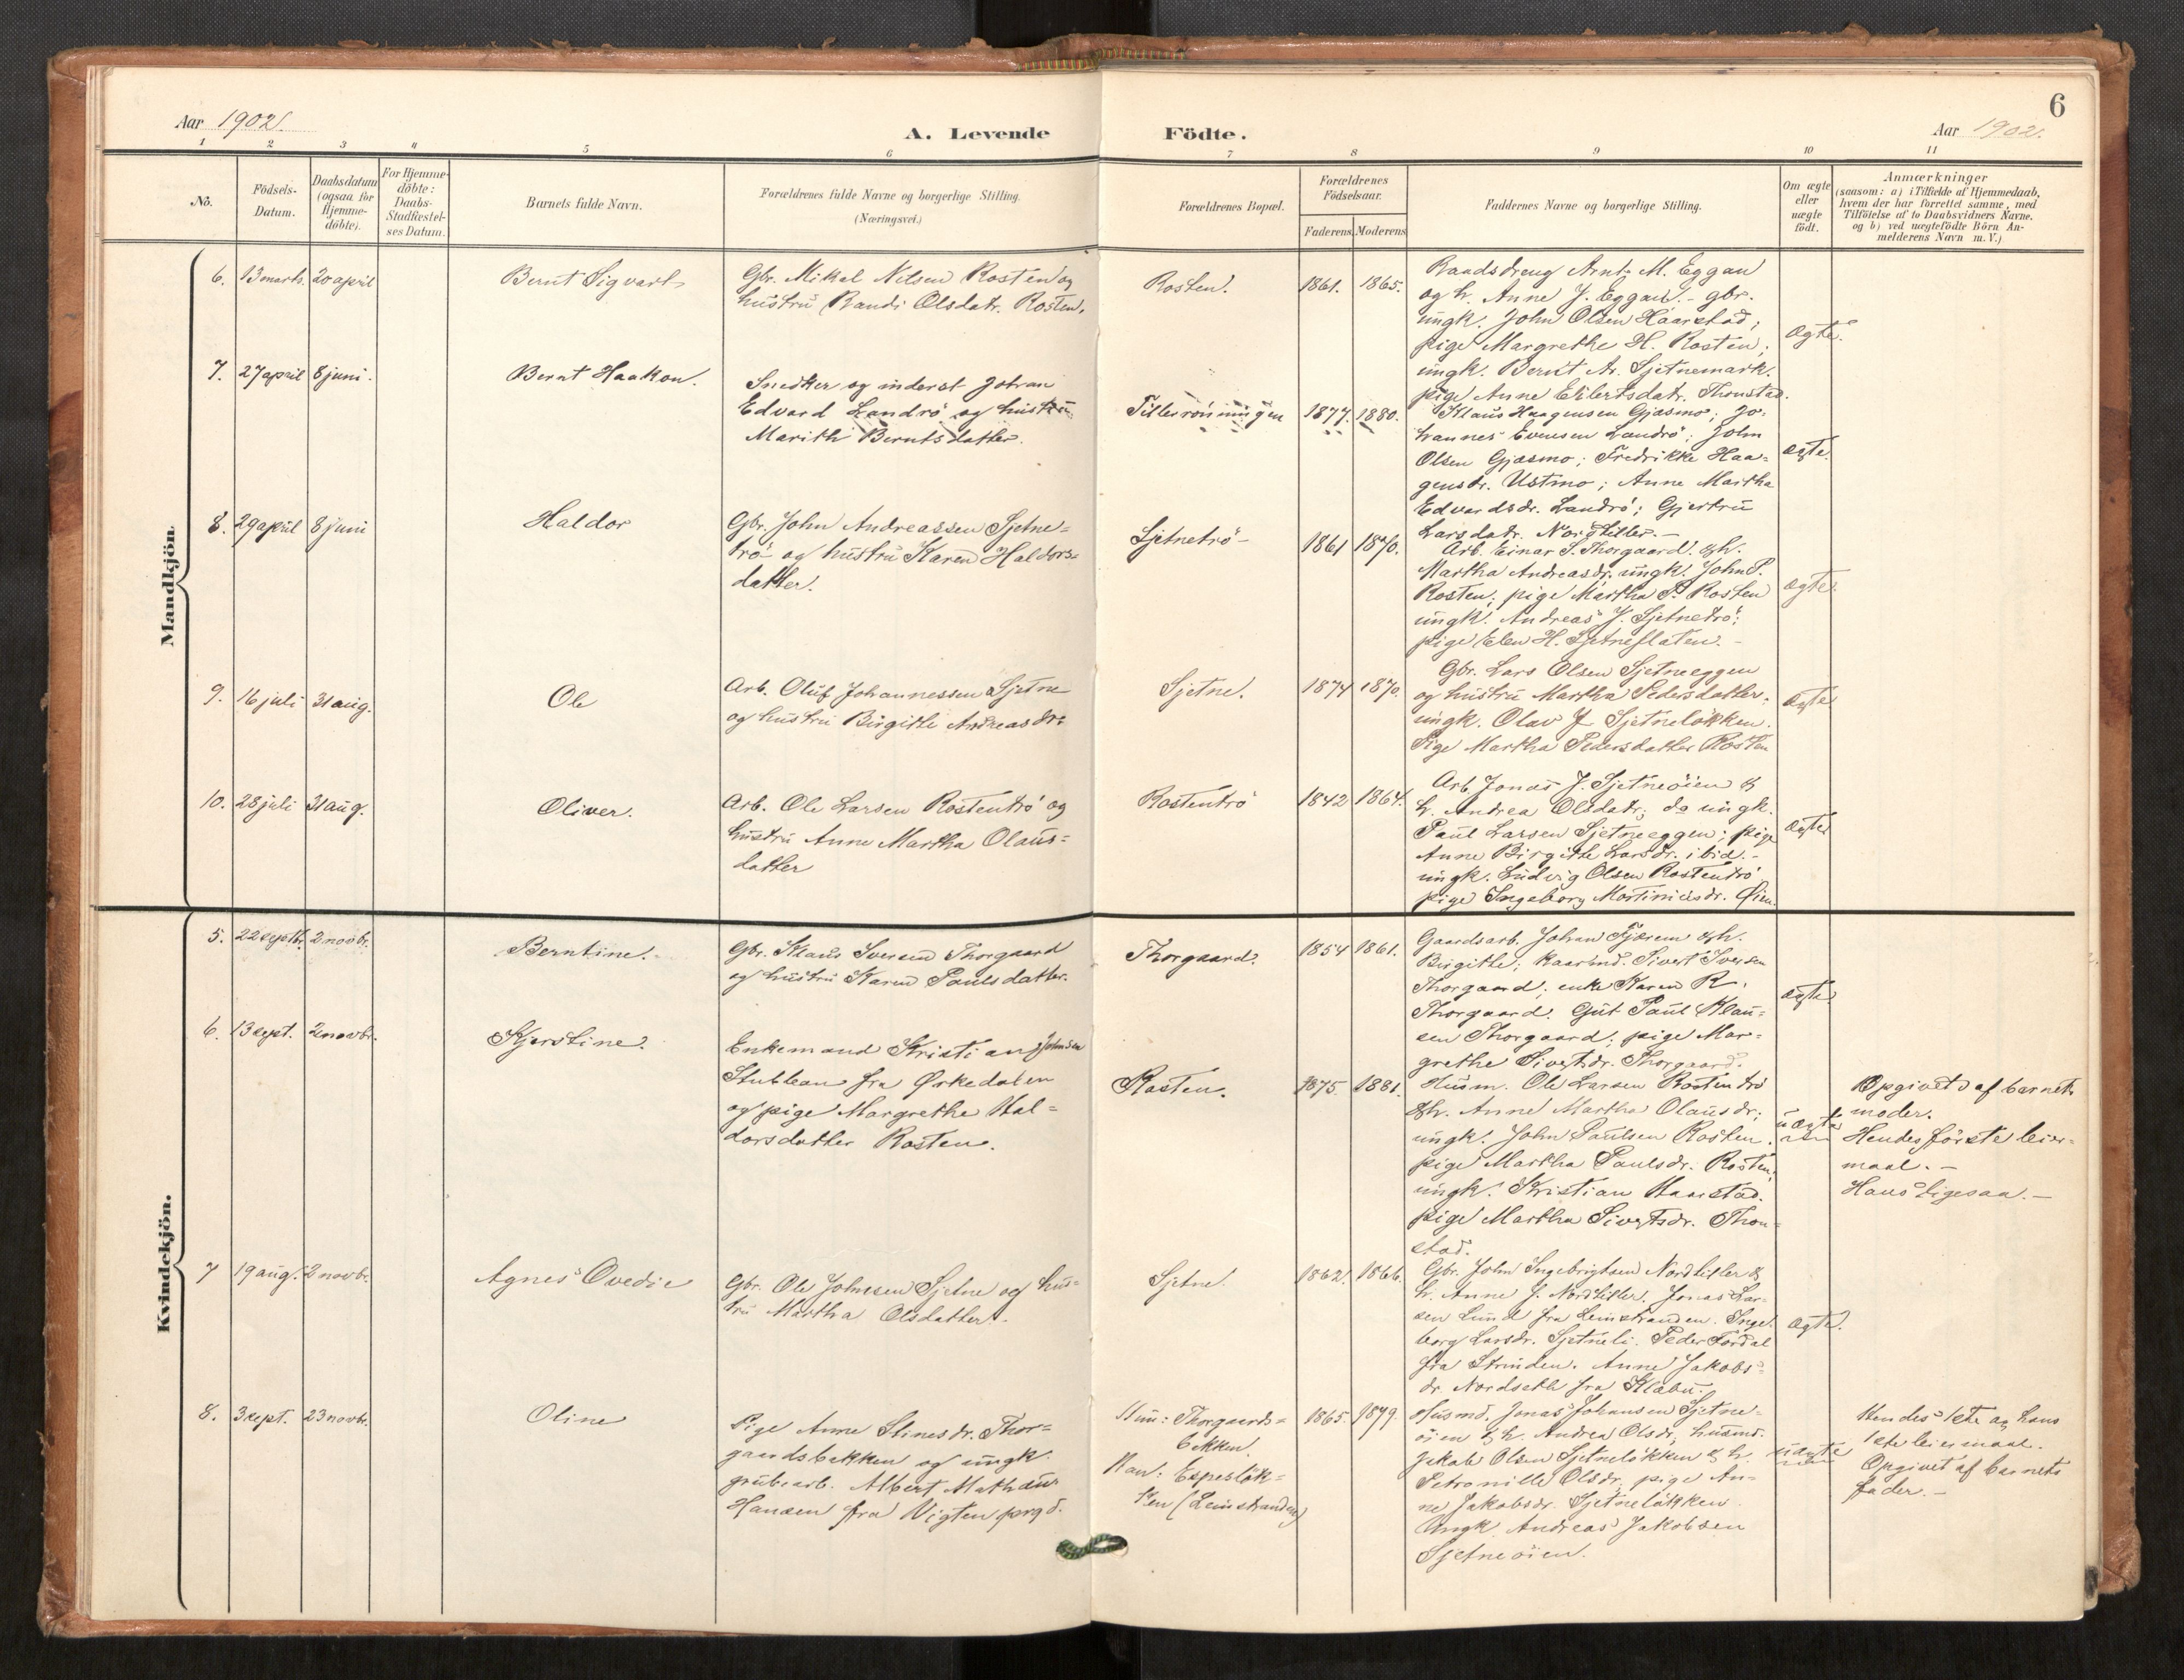 6
Aar 1902.
A. Levende Födte.
Aar 1902.
1 2 3 4 5 6 7 8 9 10 11
No.
Födsels-
Datum.
Daabsdatum
(ogsaa for
Hjemme-
döbte).
For Hjemme-
döbte:
Daabs-
Stadfæstel-
ses Datum.
Barnets fulde Navn.
Forældrenes fulde Navne og borgerlige Stilling.
(Næringsvei.)
Forældrenes Bopæl.
Forældrenes
Födselsaar.
Faderens. Moderens.
Faddernes Navne og borgerlige Stilling.
Om ægte
eller
uægte
födt.
Anmærkninger
(saasom: a) i Tilfælde af Hjemmedaab,
hvem der har forrettet samme, med
Tilföielse af to Daabsvidners Navne.
og b) ved uægtefödte Börn An-
melderens Navn m.V.)
Mandkjön.
6. 13 marts. 20 april
Bernt Sigvart
Gbr. Mikal Nilsen Rosten og
hustru Randi Olsdatr. Rosten.
Rosten.
1861. 1865.
Baadsdreng Arnt M. Eggan
og h. Anne J. Eggan. - gbr.
ungk. John Olsen Haarstad;
pige Margrethe H. Rosten;
ungk. Bernt A. Sjetnemark.
pige Anne Eilertsdatr. Thonstad.
ægte.
7. 27 april 8 juni.
Bernt Haakon.
Snedker og inderst Johan
Edvard Landrö og hustru
Marith Berntsdatter.
Tillerrönningen
1877. 1880.
Klaus Haagensen Gjasmo; Jo-
hannes Evensen Landrö; John
Olsen Gjasmo; Fredrikke Haa-
gensdr. Ustmo; Anne Martha
Edvardsdr. Landrö; Gjertru
Larsdatr. Nordtiller. -
ægte.
8. 29 april 8 juni
Haldor
Gbr. John Andreassen Sjetne-
trö og hustru Karen Haldors-
datter.
Sjetnetrö -
1861 1870.
Arb. Einar S. Thorgaard. & h.
Martha Andreasdr. ungk. John P.
Rosten; pige Martha P. Rosten
ungk. Andreas J. Sjetnetrö;
pige Elen H. Sjetneflaten. -
ægte.
9. 16 juli 31 aug.
Ole
Arb. Oluf Johannessen Sjetne
og hustru Birgitte Andreasdr.
Sjetne.
1874 1870.
Gbr. Lars Olsen Sjetneeggen
og hustru Martha Pedersdatter.
ungk. Olav J. Sjetnelökken.
Pige Martha Pedersdatter Rosten
ægte
10. 28 juli 31 aug.
Oliver.
Arb. Ole Larsen Rostentrö og
hustru Anne Martha Olaus-
datter
Rostentrö
1842 1864.
Arb. Jonas J. Sjetneöien &
h. Andrea Olsdatr; do ungk.
Paul Larsen Sjetneeggen; pige
Anne Birgitte Larsdr. ibid. -
ungk. Ludvig Olsen Rostentrö
pige Ingeborg Martinusdr. Øien.
ægte
Kvindekjön.
5. 22 septbr. 2 novbr.
Berntine.
Gbr. Klaus Iversen Thorgaard
og hustru Karen Paulsdatter.
Thorgaard.
1854 1861.
Gaardsarb. Johan Fjærem & h.
Birgithe; kaarmd. Sivert Iversen
Thorgaard; enke Karen R.
Thorgaard. Gut Paul Klau-
sen Thorgaard; pige Mar-
grethe Sivertsdr. Thorgaard.
ægte.
6. 13 sept. 2 novbr.
Kjerstine.
Enkemand Kristian Johnsen
Stubban fra Ørkedalen
og pige Margrethe Hal-
dorsdatter Rosten.
Rosten.
1875. 1881.
Husm. Ole Larsen Rostentrö
& h. Anne Martha Olausdr.;
ungk. John Paulsen Rosten.
pige Martha Paulsdr. Rosten,
ungk. Kristian Haarstad.
pige Martha Sivertsdr. Thon-
stad.
uægte
Opgivet af barnets
moder.
Hendes förste leier-
maal. -
Hans ligesaa. -
7 19 aug. 2 novbr.
Agnes Ovedie
Gbr. Ole Johnsen Sjetne og hus-
tru Martha Olsdatter.
Sjetne.
1862. 1866.
Gbr. John Ingebrigtsen Nordtiller &
h. Anne J. Nordtiller. Jonas Lar-
sen Lund fra Leinstranden. Inge-
borg Larsdr. Sjetneli. Peder Fordal
fra Strinden. Anne Jakobs-
dr Nordseth fra Klæbu.
ægte.
8. 3 sept. 23 novbr.
Oline
Pige Anne Stinesdr. Thor-
gaardsbakken og ungk.
grubearb. Albert Mathæus
Hansen fra Vigten prgd.
Hun: Thorgaards-
bakken.
Han: Espeslök-
ken (Leinstranden)
1865. 1879.
Husmd. Jonas Johansen Sjetne-
öien & h. Andrea Olsdr; husmd.
Jakob Olsen Sjetnelökken & h.
Petronille Olsdr. pige An-
ne Jakobsdr. Sjetnelökken.
Ungk. Andreas Jakobsen
Sjetneöien.
uægte
Hendes 1ste og hans
1ste leiermaal.
Opgivet af barnets
fader. -